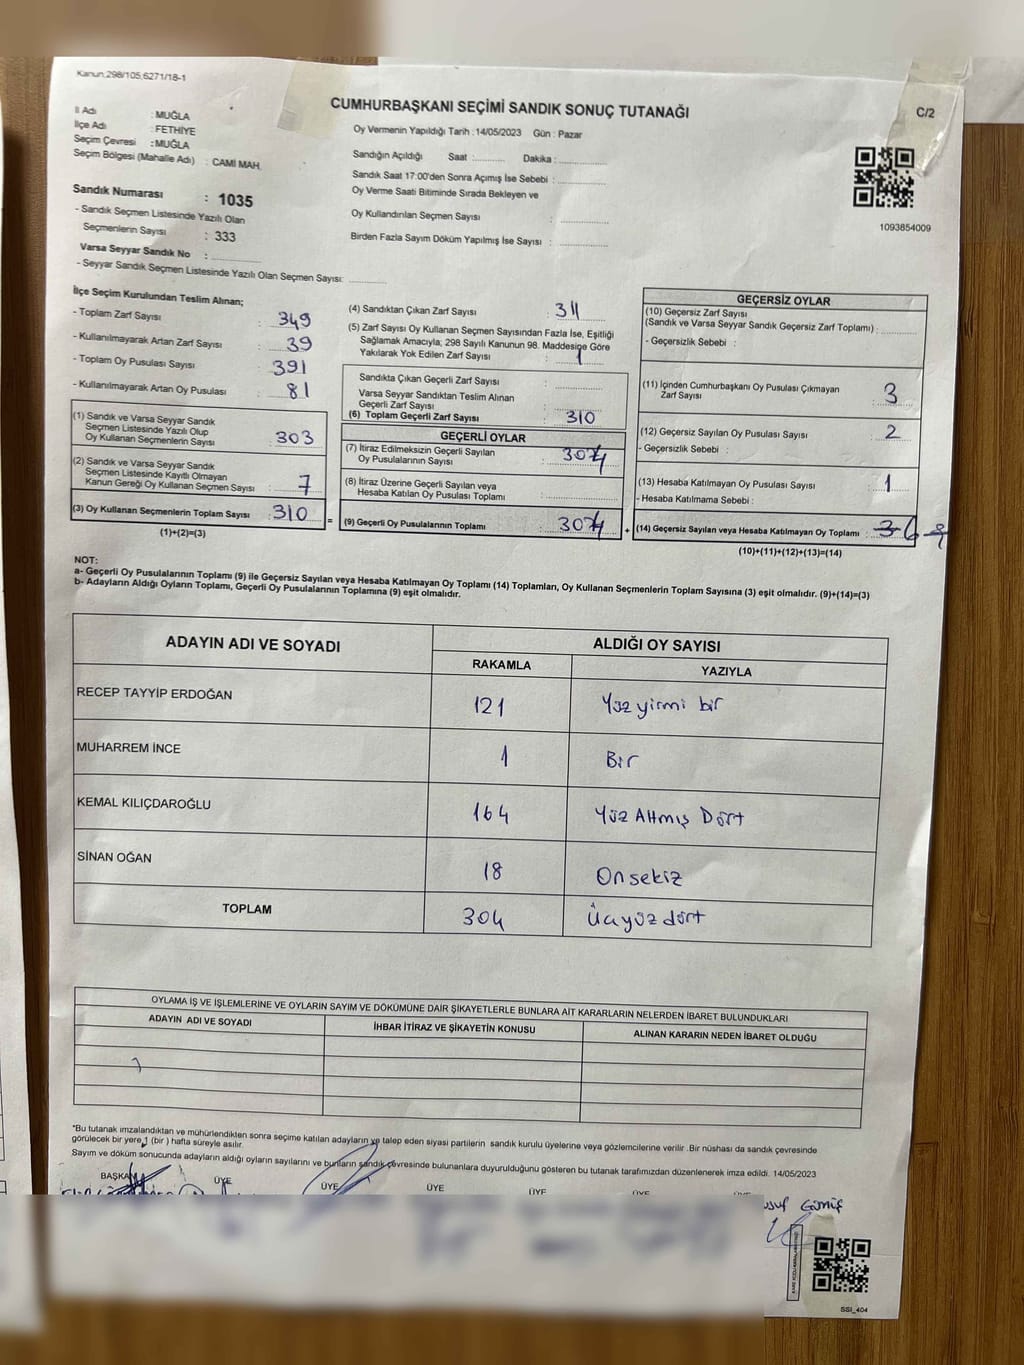 Kanun:298/105,6271/18-1
CUMHURBAŞKANI SEÇİMİ SANDIK SONUÇ TUTANAĞI
C/2
İl Adı : MUĞLA
İlçe Adı : FETHİYE
Seçim Çevresi : MUĞLA
Seçim Bölgesi (Mahalle Adı) : CAMİ MAH.
Sandık Numarası : 1035
- Sandık Seçmen Listesinde Yazılı Olan
Seçmenlerin Sayısı : 333
Varsa Seyyar Sandık No : ..............
- Seyyar Sandık Seçmen Listesinde Yazılı Olan Seçmen Sayısı: ............
Oy Vermenin Yapıldığı Tarih : 14/05/2023 Gün : Pazar
Sandığın Açıldığı Saat ........... Dakika : ...............
Sandık Saat 17:00'den Sonra Açımış İse Sebebi : ...............
Oy Verme Saati Bitiminde Sırada Bekleyen ve
Oy Kullandırılan Seçmen Sayısı : ...............
Birden Fazla Sayım Döküm Yapılmış İse Sayısı : ...............
1093854009
İlçe Seçim Kurulundan Teslim Alınan;
- Toplam Zarf Sayısı : 349
- Kullanılmayarak Artan Zarf Sayısı : 39
- Toplam Oy Pusulası Sayısı : 391
- Kullanılmayarak Artan Oy Pusulası : 81
(1) Sandık ve Varsa Seyyar Sandık
Seçmen Listesinde Yazılı Olup
Oy Kullanan Seçmenlerin Sayısı : 303
(2) Sandık ve Varsa Seyyar Sandık
Seçmen Listesinde Kayıtlı Olmayan
Kanun Gereği Oy Kullanan Seçmen Sayısı : 7
(3) Oy Kullanan Seçmenlerin Toplam Sayısı : 310 =
(1)+(2)=(3)
(4) Sandıktan Çıkan Zarf Sayısı : 311
(5) Zarf Sayısı Oy Kullanan Seçmen Sayısından Fazla İse, Eşitliği
Sağlamak Amacıyla; 298 Sayılı Kanunun 98. Maddesine Göre
Yakılarak Yok Edilen Zarf Sayısı : 1
Sandıkta Çıkan Geçerli Zarf Sayısı : ...............
Varsa Seyyar Sandıktan Teslim Alınan
Geçerli Zarf Sayısı : ...............
(6) Toplam Geçerli Zarf Sayısı : 310
GEÇERLİ OYLAR
(7) İtiraz Edilmeksizin Geçerli Sayılan
Oy Pusulalarının Sayısı : 304
(8) İtiraz Üzerine Geçerli Sayılan veya
Hesaba Katılan Oy Pusulası Toplamı : ...............
(9) Geçerli Oy Pusulalarının Toplamı : 304 +
GEÇERSİZ OYLAR
(10) Geçersiz Zarf Sayısı
(Sandık ve Varsa Seyyar Sandık Geçersiz Zarf Toplamı) : ............
- Geçersizlik Sebebi :
(11) İçinden Cumhurbaşkanı Oy Pusulası Çıkmayan
Zarf Sayısı : 3
(12) Geçersiz Sayılan Oy Pusulası Sayısı : 2
- Geçersizlik Sebebi :
(13) Hesaba Katılmayan Oy Pusulası Sayısı : 1
- Hesaba Katılmama Sebebi :
(14) Geçersiz Sayılan veya Hesaba Katılmayan Oy Toplamı : 3 6
(10)+(11)+(12)+(13)=(14)
NOT:
a- Geçerli Oy Pusulalarının Toplamı (9) ile Geçersiz Sayılan veya Hesaba Katılmayan Oy Toplamı (14) Toplamları, Oy Kullanan Seçmenlerin Toplam Sayısına (3) eşit olmalıdır. (9)+(14)=(3)
b- Adayların Aldığı Oyların Toplamı, Geçerli Oy Pusulalarının Toplamına (9) eşit olmalıdır.
ADAYIN ADI VE SOYADI
ALDIĞI OY SAYISI
RAKAMLA YAZIYLA
RECEP TAYYİP ERDOĞAN 121 Yüz yirmi bir
MUHARREM İNCE 1 Bir
KEMAL KILIÇDAROĞLU 164 Yüz Altmış Dört
SİNAN OĞAN 18 Onsekiz
TOPLAM 304 Üçyüz dört
OYLAMA İŞ VE İŞLEMLERİNE VE OYLARIN SAYIM VE DÖKÜMÜNE DAİR ŞİKAYETLERLE BUNLARA AİT KARARLARIN NELERDEN İBARET BULUNDUKLARI
ADAYIN ADI VE SOYADI İHBAR İTİRAZ VE ŞİKAYETİN KONUSU ALINAN KARARIN NEDEN İBARET OLDUĞU
*Bu tutanak imzalandıktan ve mühürlendikten sonra seçime katılan adayların ve talep eden siyasi partilerin sandık kurulu üyelerine veya gözlemcilerine verilir .Bir nüshası da sandık çevresinde
görülecek bir yere 1 (bir ) hafta süreyle asılır.
Sayım ve döküm sonucunda adayların aldığı oyların sayılarını ve bunların sandık çevresinde bulunanlara duyurulduğunu gösteren bu tutanak tarafımızdan düzenlenerek imza edildi. 14/05/2023
BAŞKAN ÜYE ÜYE ÜYE ÜYE ÜYE
usuf Gümüş
SSI_404